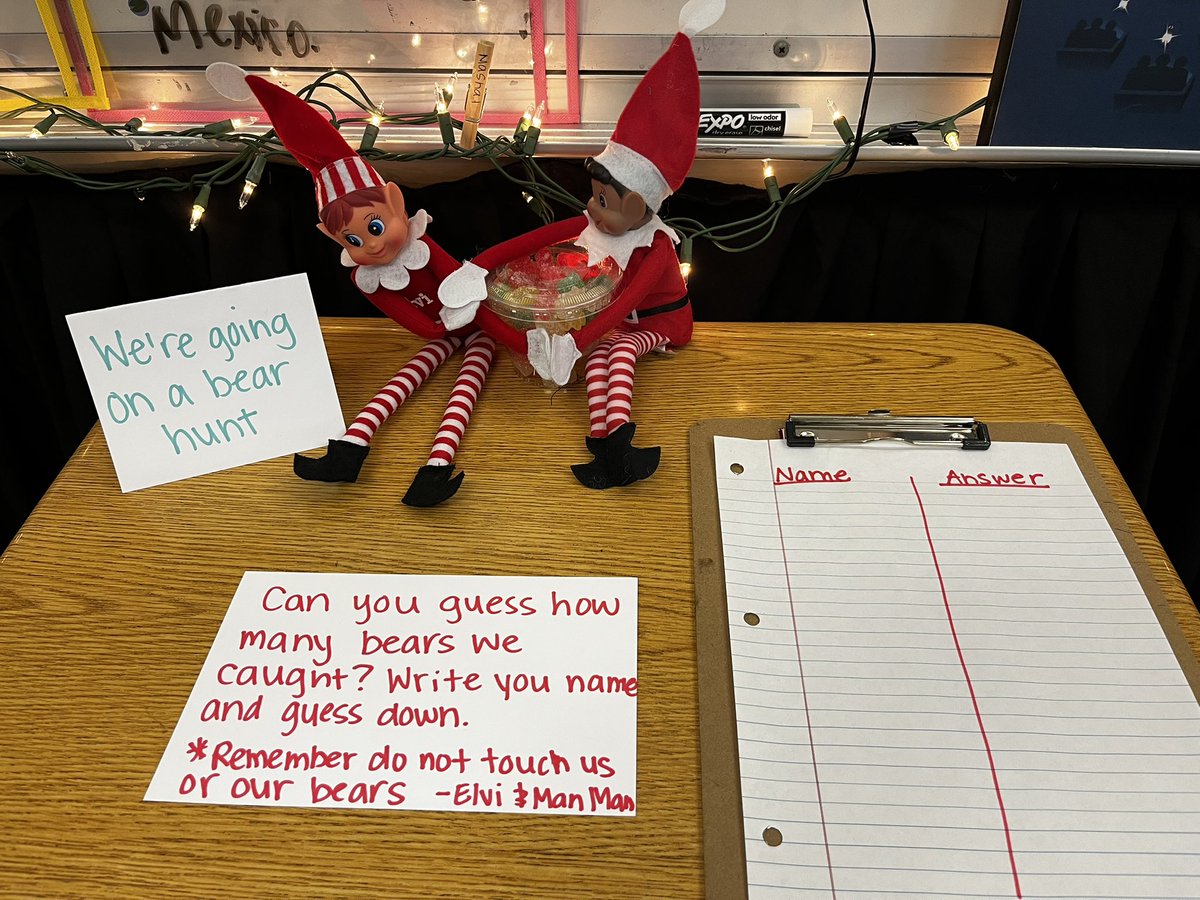 Mexico.
Mashal
EXPO low odor
dry erase chisel
We're going
on a bear
hunt
Name Answer
Can you guess how
many bears we
caught? Write you name
and guess down.
*Remember do not touch us
or our bears -Elvi & Man Man